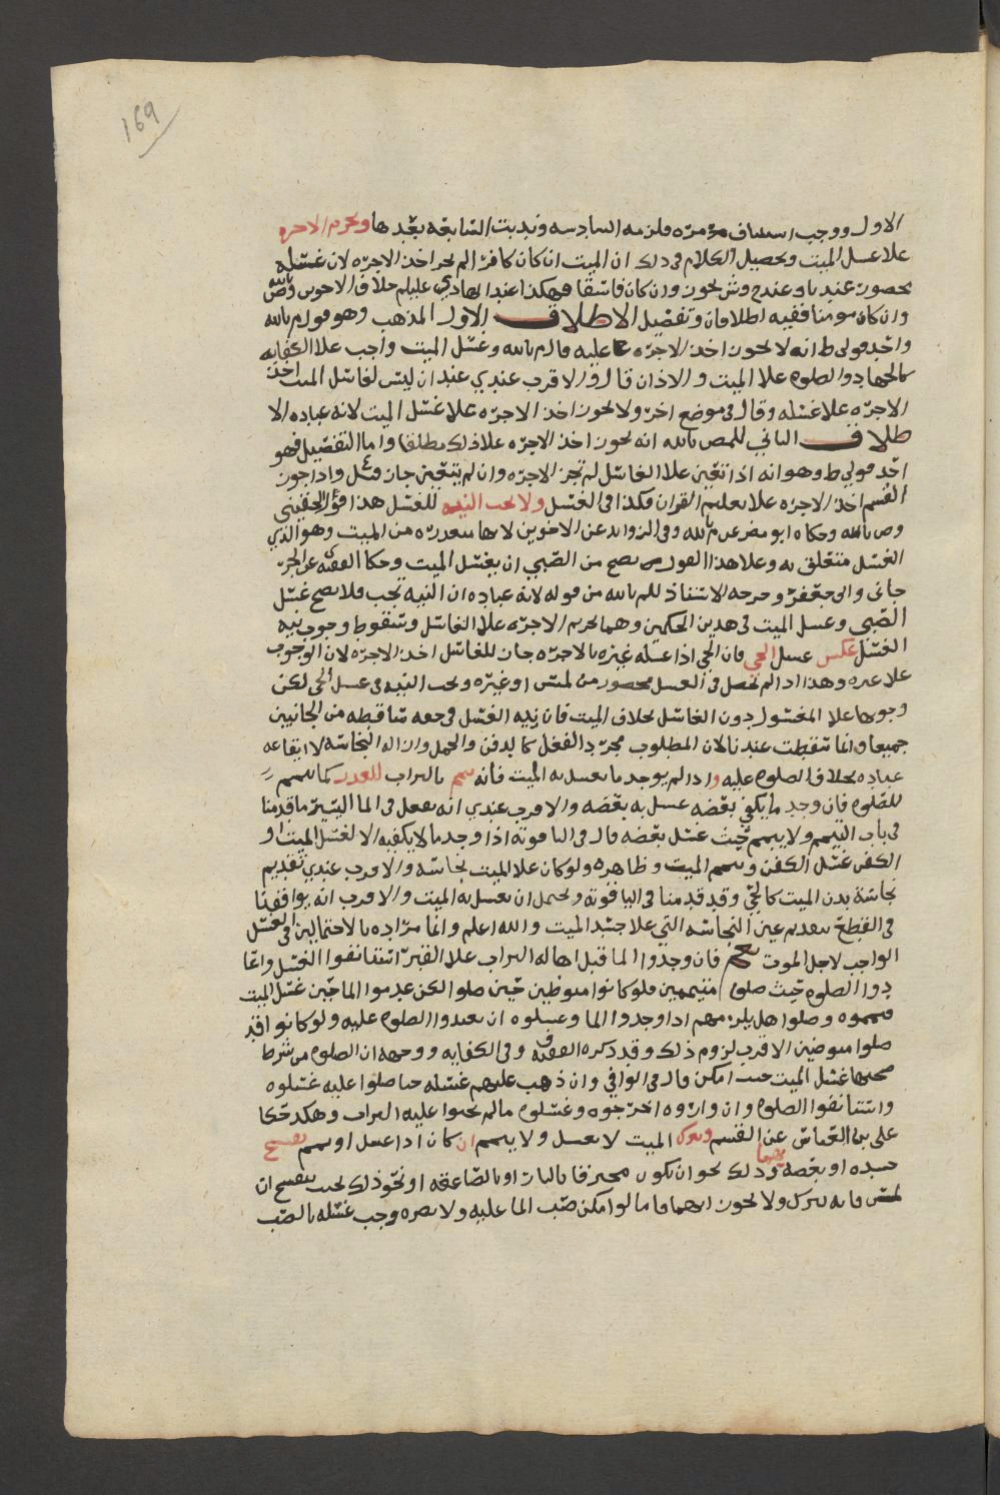 169
الاول ووجب استيناف مرة مره ولزمه السادسه وندبت السابعه بعدها وتحرم الاجره
علا غسل الميت وتحصيل الكلام في ذلك ان الميت ان كان كافرا لم تجز اخذ الاجره لان غسله
محضور عند باو عند ح وش يجوز وان كان فاسقا فهكذا عند الهادي عليلم خلاف الاخوين وص بالله
وان كان مومنا ففيه اطلاقان وتفصيل الاطلاق الاول المذهب وهو قول م بالله
واحد قولي ط انه لا يجوز اخذ الاجره عليه قال م بالله وغسل الميت واجب علا الكفايه
كالجهاد والصلوه علا الميت والاذان قال و الاقرب عندي عند ان ليس لغاسل الميت اخذ
الاجره علا غسله وقال في موضع اخر ولا يجوز اخذ الاجره علا غسل الميت لانه عباده الا
طلاق الثاني للمص بالله انه يجوز اخذ الاجره علا ذلك مطلقا واما التفصيل فهو
احد قولي ط وهو انه اذا تعين علا الغاسل لم تجز الاجره وان لم يتعين جاز وقيل واذا جوز
القسم اخذ الاجره علا تعليم القران فكذا في الغسل ولا تجب النيه للغسل هذا قول الحقيني
وص بالله وحكاه ابو مضر عن م بالله وفي الزوايد عن الاخوين لانها متعذره من الميت وهو الذي
الغسل متعلق به وعلا هذا القول يصح من الصبي ان يغسل الميت وحكا الفقيه عن الجر
جاني وابي جعفر وخرجه الاستاذ للم بالله من قوله لانه عباده ان النيه تجب فلا يصح غسل
الصبي وغسل الميت في هذين الحكمين وهما تحريم الاجره علا الغاسل وسقوط وجوب نيه
الغسل عكس غسل الحي فان الحي اذا غسله غيره بالاجره جاز للغاسل اخذ الاجره لان الوجوب
علا غيره وهذا اذا لم يحصل في الغسل محضور من لمس او غيره وتجب النيه في غسل الحي لكن
وجوبها علا المغسول دون الغاسل بخلاف الميت فان نيه الغسل في حقه ساقطه من الجانبين
جميعا وانما سقطت عندنا لان المطلوب مجرد الفعل كالدفن والحمل وازاله النجاسه لا ايقاعه
عباده بخلاف الصلوه عليه واذا لم يوجد ما يغسل به الميت فانه ييمم بالتراب للعذر كما ييمم
للصلوه فان وجد ما يكفي بعضه غسل به بعضه والاقرب عندي انه يفعل في الما اليسير ما قدمنا
في باب التيمم ولا ييمم حيث غسل بعضه قال في الياقوته اذا وجد ما لا يكفيه الا لغسل الميت او
الكفن غسل الكفن ويمم الميت وظاهره ولو كان علا الميت نجاسه والاقرب عندي تقديم
نجاسة بدن الميت كالحي وقد قدمنا في الياقوته ويحتمل ان يغسل به الميت والاقرب انه يوافقنا
في القطع بتقديم عين النجاسه التي علا جسد الميت والله اعلم وانما مراده بالاحتمالين في الغسل
الواجب لاجل الموت فان وجدوا الما قبل اهاله التراب علا القبر استانفوا الغسل واعا
دوا الصلوه حيث صلوا متيممين فلو كانوا متوظين حين صلوا لكن عدموا الما حين غسل الميت
فيمموه وصلوا هل يلزمهم اذا وجدوا الما وغسلوه ان يعيدوا الصلوه عليه ولو كانوا قد
صلوا متوضين الاقرب لزوم ذلك وقد ذكره الفقيه ف وفي الكفايه ووجهه ان الصلوه من شرط
صحتها غسل الميت حيث امكن قال في الوافي وان ذهب عليهم غسله حتى صلوا عليه غسلوه
واستانفوا الصلوه وان واروه اخرجوه وغسلوه ما لم يحثوا عليه التراب وهكذا حكا
علي بن العباس عن القسم ويترك الميت لا يغسل ولا ييمم ان كان اذا غسل او يمم تفسخ
جسده او بعضه وذلك نحو ان يكون محترقا بالنار او بالصاعقه او نحو ذلك بحيث يتفسخ ان
لمس فانه يترك ولا يجوز ايهما فاما لو امكن صب الما عليه ولا يضره وجب غسله بالصب